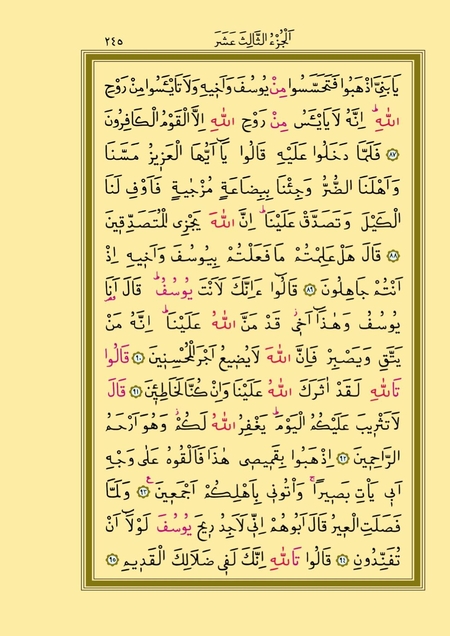 اَلْجُزْءُ الثَّالِثَ عَشَرَ ٢٤٥
يَابَنِيَّ اذْهَبُوا فَتَحَسَّسُوا مِنْ يُوسُفَ وَاَخٖيهِ وَلَا تَايْـَٔسُوا مِنْ رَوْحِ
اللّٰهِؕ اِنَّهُ لَا يَايْـَٔسُ مِنْ رَوْحِ اللّٰهِ اِلَّا الْقَوْمُ الْـكَافِرُونَ
﴿٨٧﴾ فَلَمَّا دَخَلُوا عَلَيْهِ قَالُوا يَٓا اَيُّهَا الْعَزٖيزُ مَسَّنَا
وَاَهْلَنَا الضُّرُّ وَجِئْنَا بِبِضَاعَةٍ مُزْجٰيةٍ فَاَوْفِ لَنَا
الْكَيْلَ وَتَصَدَّقْ عَلَيْنَاؕ اِنَّ اللّٰهَ يَجْزِي الْمُتَصَدِّقٖينَ
﴿٨٨﴾ قَالَ هَلْ عَلِمْتُمْ مَا فَعَلْتُمْ بِيُوسُفَ وَاَخٖيهِ اِذْ
اَنْتُمْ جَاهِلُونَ ﴿٨٩﴾ قَالُٓوا ءَاِنَّكَ لَاَنْتَ يُوسُفُؕ قَالَ اَنَا۬
يُوسُفُ وَهٰذَٓا اَخٖيؗ قَدْ مَنَّ اللّٰهُ عَلَيْنَاؕ اِنَّهُ مَنْ
يَتَّقِ وَيَصْبِرْ فَاِنَّ اللّٰهَ لَا يُضٖيعُ اَجْرَ الْمُحْسِنٖينَ ﴿٩٠﴾ قَالُوا
تَاللّٰهِ لَقَدْ اٰثَرَكَ اللّٰهُ عَلَيْنَا وَاِنْ كُنَّا لَخَاطِـٖٔينَ ﴿٩١﴾ قَالَ
لَا تَثْرٖيبَ عَلَيْكُمُ الْيَوْمَؕ يَغْفِرُ اللّٰهُ لَكُمْؗ وَهُوَ اَرْحَمُ
الرَّاحِمٖينَ ﴿٩٢﴾ اِذْهَبُوا بِقَمٖيصٖي هٰذَا فَاَلْقُوهُ عَلٰى وَجْهِ
اَبٖي يَأْتِ بَصٖيراًۚ وَأْتُونٖي بِاَهْلِكُمْ اَجْمَعٖينَ۟ ﴿٩٣﴾ وَلَمَّا
فَصَلَتِ الْعٖيرُ قَالَ اَبُوهُمْ اِنّٖي لَاَجِدُ رٖيحَ يُوسُفَ لَوْلَٓا اَنْ
تُفَنِّدُونِ ﴿٩٤﴾ قَالُوا تَاللّٰهِ اِنَّكَ لَفٖي ضَلَالِكَ الْقَدٖيمِ ﴿٩٥﴾